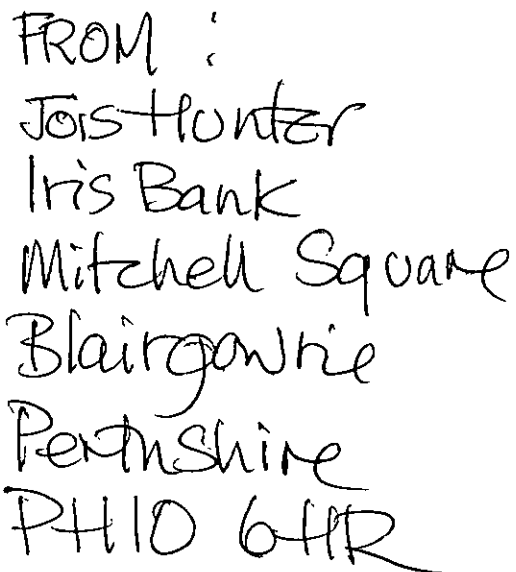 FROM :
Jois Hunter
Iris Bank
Mitchell Square
Blairgowrie
Perthshire
PH10 6HR